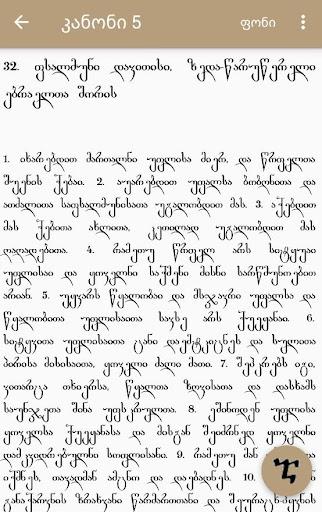 კანონი 5
ფონი
32. ფსალმუნი დავითისი, ზედა-წარუწერელი
ებრაელთა შორის
1. იხარებდით მართალნი უფლისა მიერ, და წრფელთა
შუენის ქებაი. 2. აუარებდით უფალსა ბობღნითა და
ათძალითა საფსალმუნისათა უგალობდით მას. 3. აქებდით
მას ქებითა ახლითა, კეთილად უგალობდით მას
ღაღადებითა. 4. რამეთუ წრფელ არს სიტყუაი
უფლისაი და ყოველნი საქმენი მისნი სარწმუნოებით
არიან. 5. უყუარს წყალობაი და მსჯავრი უფალსა და
წყალობითა უფლისაითა სავსე არს ქუეყანაი. 6.
სიტყვითა უფლისაითა ცანი დაემტკიცნეს და სულითა
პირისა მისისაითა, ყოველი ძალი მათი. 7. შეკრებს იგი,
ვითარცა თხიერსა, წყალთა ზღვისათა და დასხამს
საუნჯეთა შინა უფსკრულთა. 8. ეშინოდენ უფლისა
ყოველსა ქუეყანასა და მისგან შეიძრნედ ყოველნი
დამკვიდრებულნი სოფლისანი. 9. რამეთუ მან თქუა და
იქმნეს, თავადმან ამცნო და დაებადნეს. 10.
განაქარვნის ზრახვანი წარმართთანი და